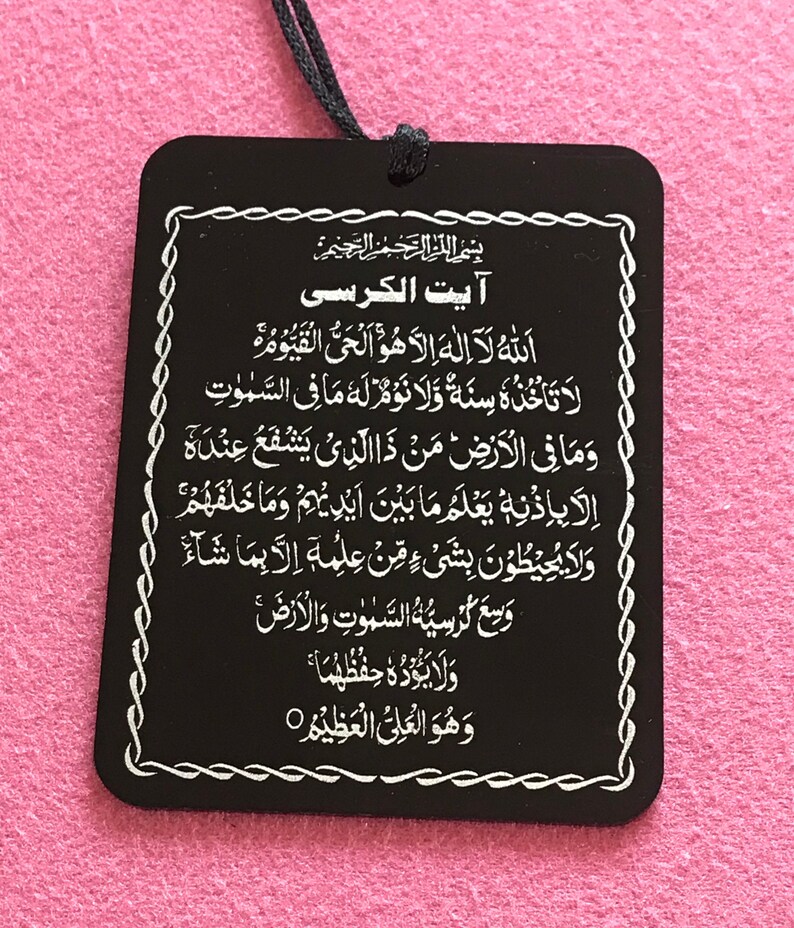 بِسْمِ اللهِ الرَّحْمٰنِ الرَّحِيْمِ
آيت الكرسى
اَللهُ لَآ اِلٰهَ اِلَّا هُوَۚ اَلْحَىُّ الْقَيُّوْمُ ۚ
لَا تَاْخُذُهٗ سِنَةٌ وَّلَا نَوْمٌؕ لَهٗ مَا فِى السَّمٰوٰتِ
وَمَا فِى الْاَرْضِؕ مَنْ ذَا الَّذِىْ يَشْفَعُ عِنْدَهٗٓ
اِلَّا بِاِذْنِهٖؕ يَعْلَمُ مَا بَيْنَ اَيْدِيْهِمْ وَمَا خَلْفَهُمْۚ
وَلَا يُحِيْطُوْنَ بِشَىْءٍ مِّنْ عِلْمِهٖٓ اِلَّا بِمَا شَآءَۚ
وَسِعَ كُرْسِيُّهُ السَّمٰوٰتِ وَالْاَرْضَۚ
وَلَا يَـُٔوْدُهٗ حِفْظُهُمَاۚ
وَهُوَ الْعَلِىُّ الْعَظِيْمُ ○